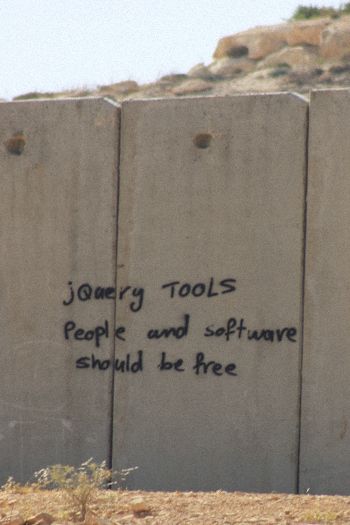 jQuery TOOLS
People and software
should be free